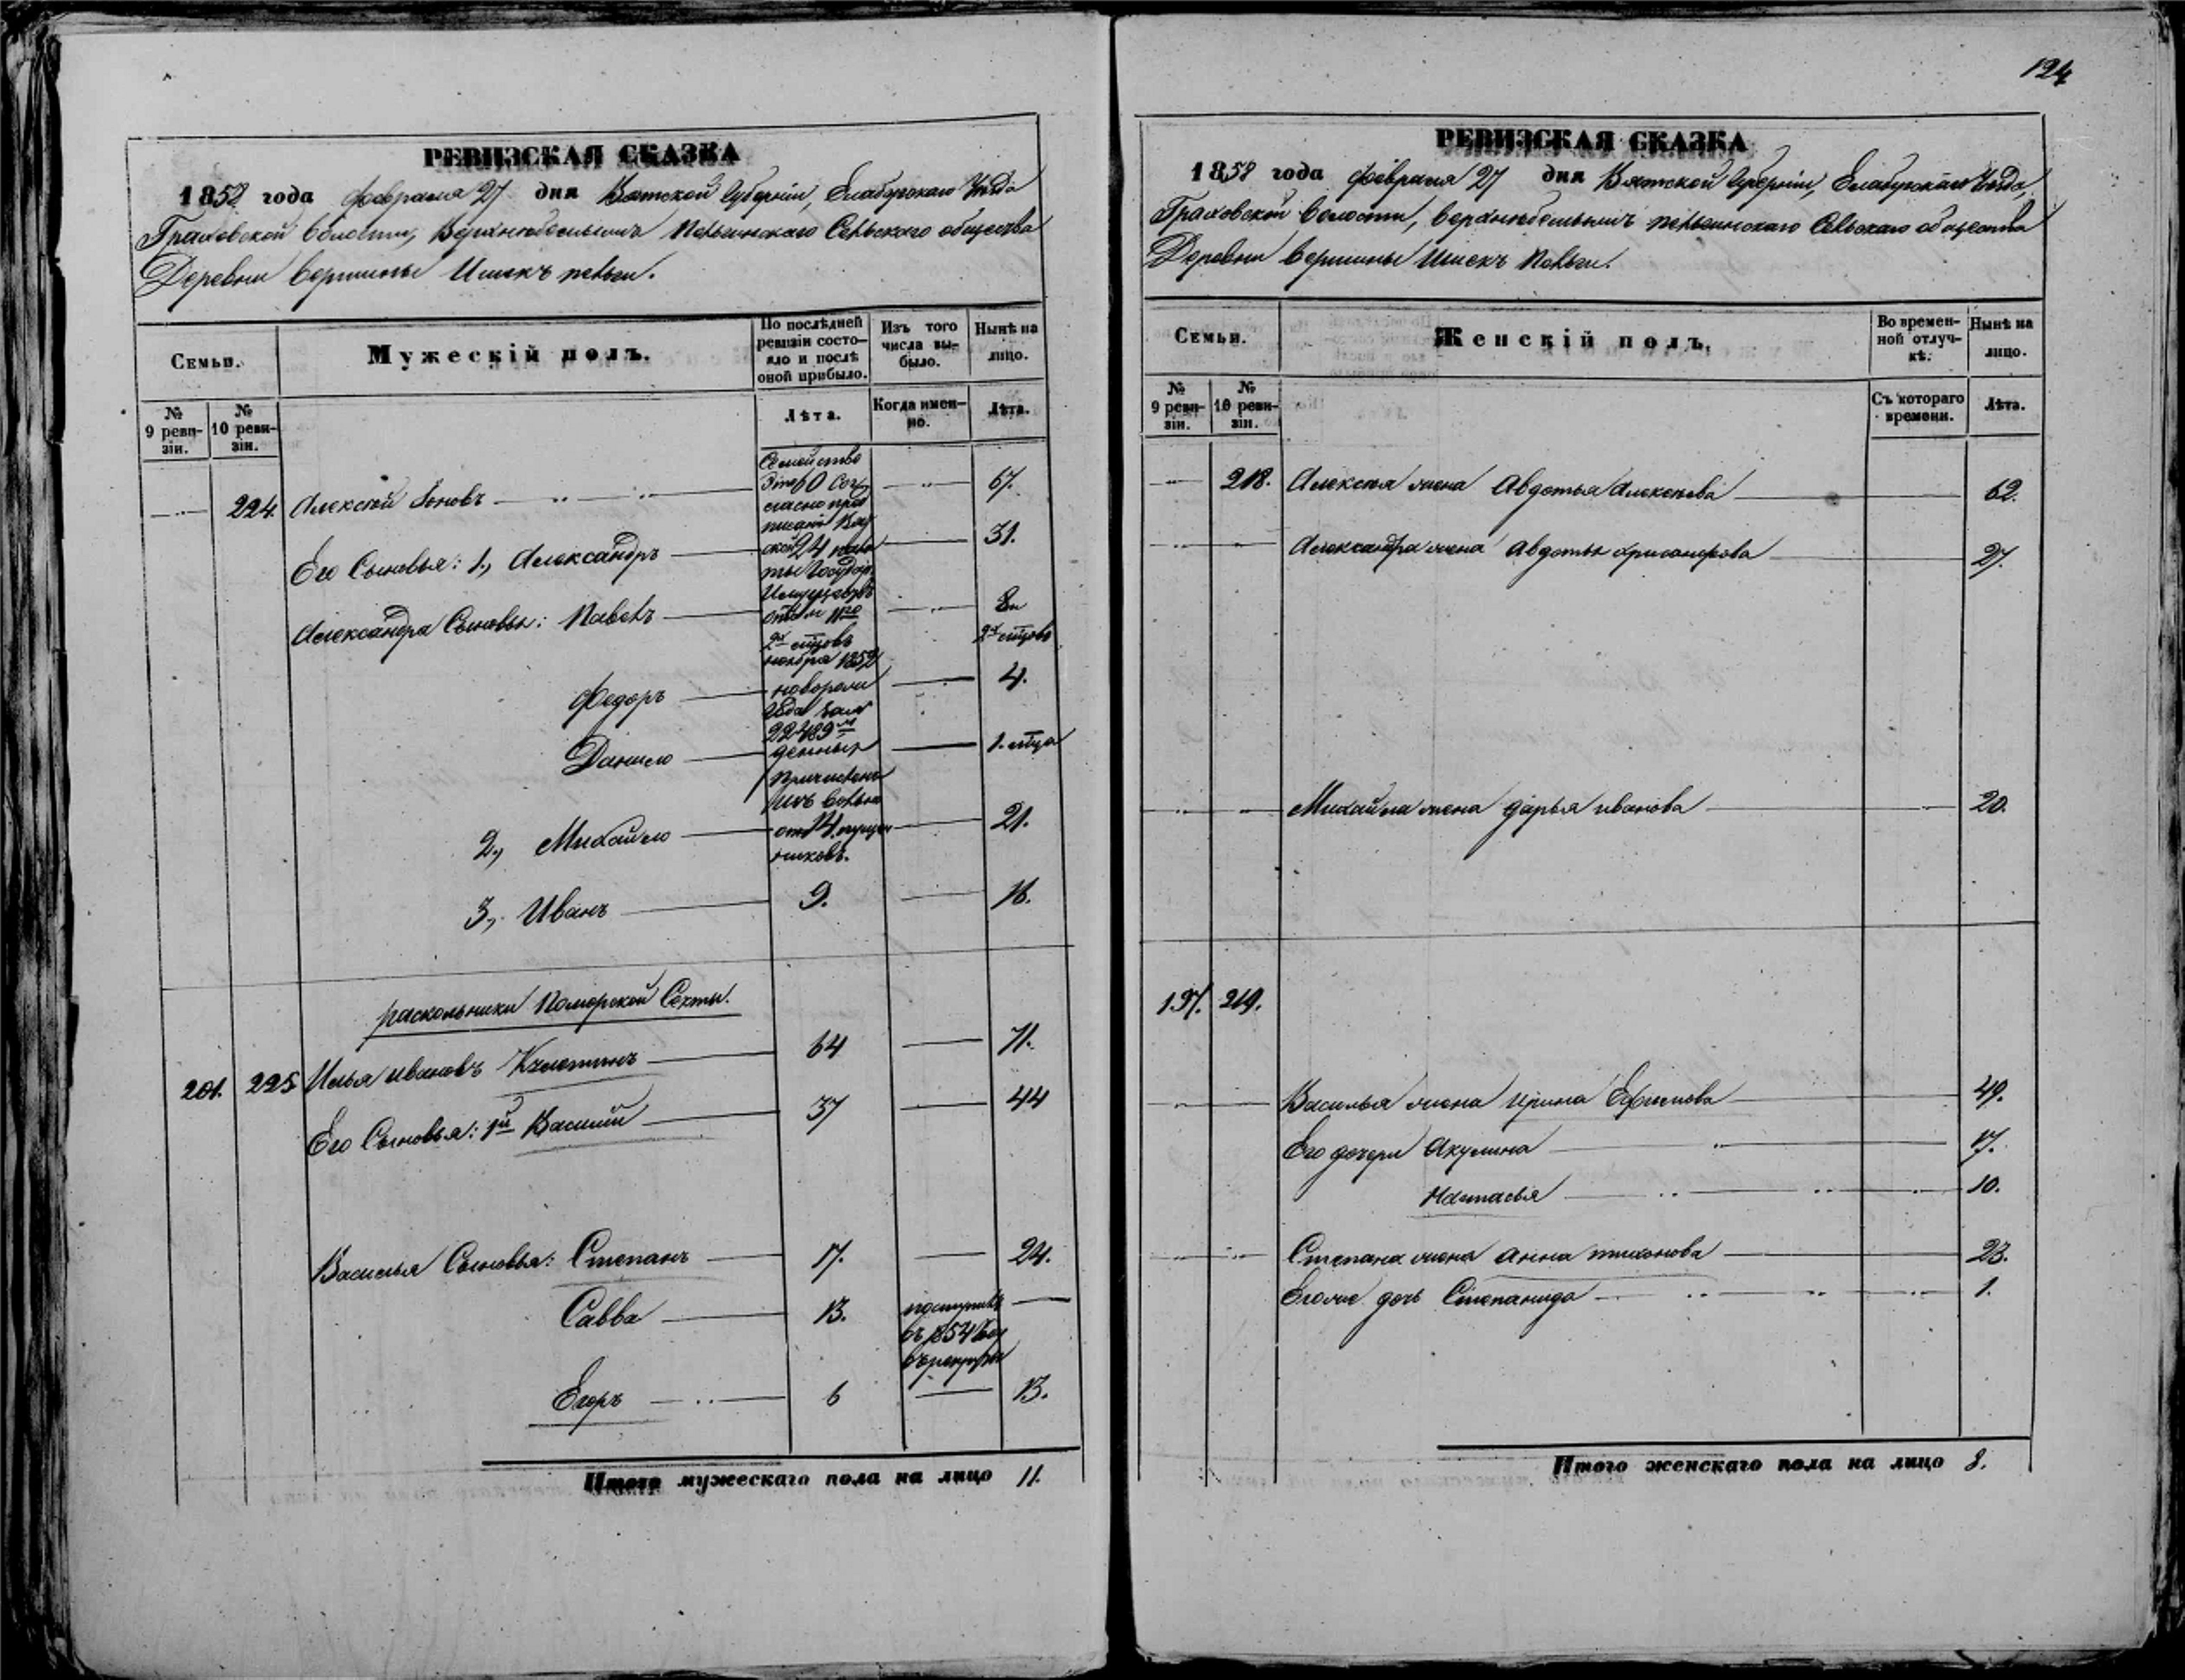 124
РЕВИЗСКАЯ СКАЗКА
1858 года февраля 27 дня Вятской Губерніи, Елабужскаго Уѣзда
Граховской волости, сельскаго общества
Деревни Вершины
Семьи.
Мужескій полъ.
По послѣдней ревизіи состояло и послѣ оной прибыло.
Изъ того числа выбыло.
Нынѣ на лицо.
№ 9 ревизіи.
№ 10 ревизіи.
Лѣта.
Когда именно.
Лѣта.
224. Алексѣй 60 67.
Его Сыновья: 1., Александръ 24 31.
Александра Сыновья: Павелъ
Федоръ новорож 4.
Данило денные
2., Михайло 14 21.
3., Иванъ 9. 16.
Семейство
Имуществъ
ноября
22489
раскольники Поморской Секты.
201. 225 Илья Ивановъ 64 71.
Его Сыновья: 1й Василій 37 44
Василья Сыновья: Степанъ 17. 24.
Савва 13. поступилъ
въ 1854 году
въ рекруты
Егоръ 6 13.
Итого мужескаго пола на лицо 11.
РЕВИЗСКАЯ СКАЗКА
1858 года февраля 27 дня Вятской Губерніи, Елабужскаго Уѣзда,
Граховской волости, сельскаго общества
Деревни Вершины
Семьи.
Женскій полъ.
Во временной отлучкѣ.
Нынѣ на лицо.
№ 9 ревизіи.
№ 10 ревизіи.
Съ котораго времени.
Лѣта.
218. Алексѣя жена Авдотья Алексѣева 62.
Александра жена Авдотья 27.
Михайла жена Дарья Иванова 20.
197. 219.
Василья жена Ирина Ефимова 49.
Его дочери Акулина 17.
Настасья 10.
Степана жена Анна Тихонова 23.
Его же дочь Степанида 1.
Итого женскаго пола на лицо 8.